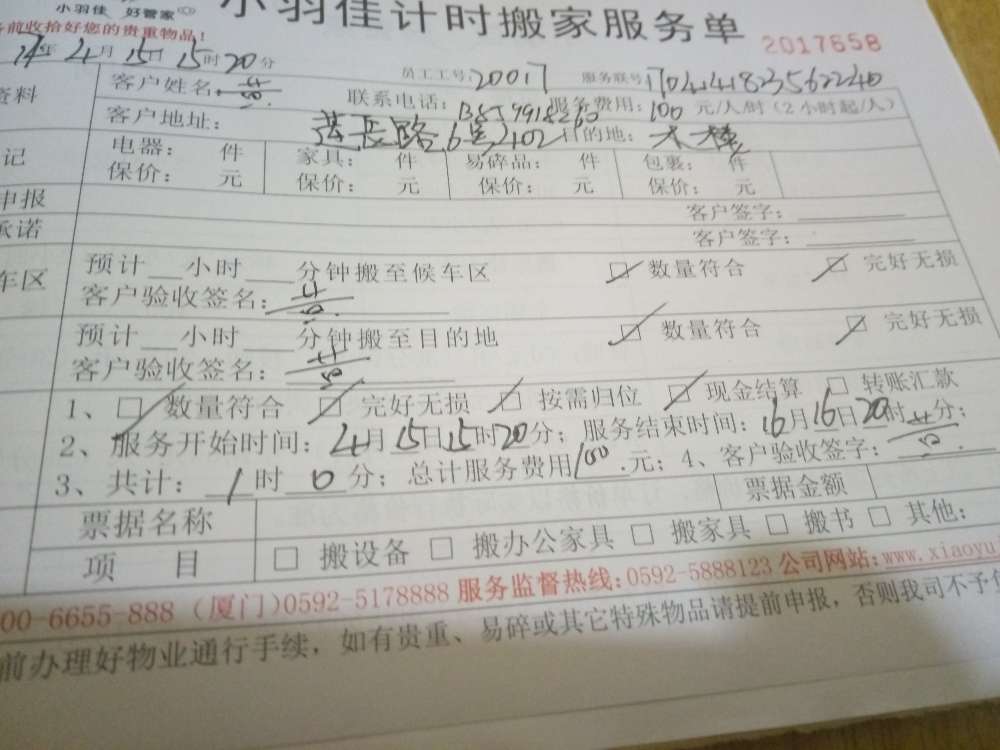 小羽佳 好管家
前收拾好您的贵重物品!
小羽佳计时搬家服务单
2017658
4月15日15时20分
员工工号:20017 服务联号:
资料 客户姓名: 联系电话: 服务费用:100元/人/时(2小时起/人)
客户地址: 长路6号 402 目的地:
记 电器: 件 家具: 件 易碎品: 件 包裹: 件
保价: 元 保价: 元 保价: 元 保价: 元
申报 客户签字:
承诺 客户签字:
车区 预计 小时 分钟搬至候车区 □ 数量符合 □ 完好无损
客户验收签名:
预计 小时 分钟搬至目的地 □ 数量符合 □ 完好无损
客户验收签名:
1、□ 数量符合 □ 完好无损 □ 按需归位 □ 现金结算 □ 转账汇款
2、服务开始时间:4月15日15时20分;服务结束时间:16月16日20时 分;
3、共计:1时0分;总计服务费用100.元;4、客户验收签字:
票据名称 票据金额
项 目 □ 搬设备 □ 搬办公家具 □ 搬家具 □ 搬书 □ 其他:
00-6655-888(厦门)0592-5178888 服务监督热线:0592-5888123 公司网站:www.xiaoyu
前办理好物业通行手续,如有贵重、易碎或其它特殊物品请提前申报,否则我司不予